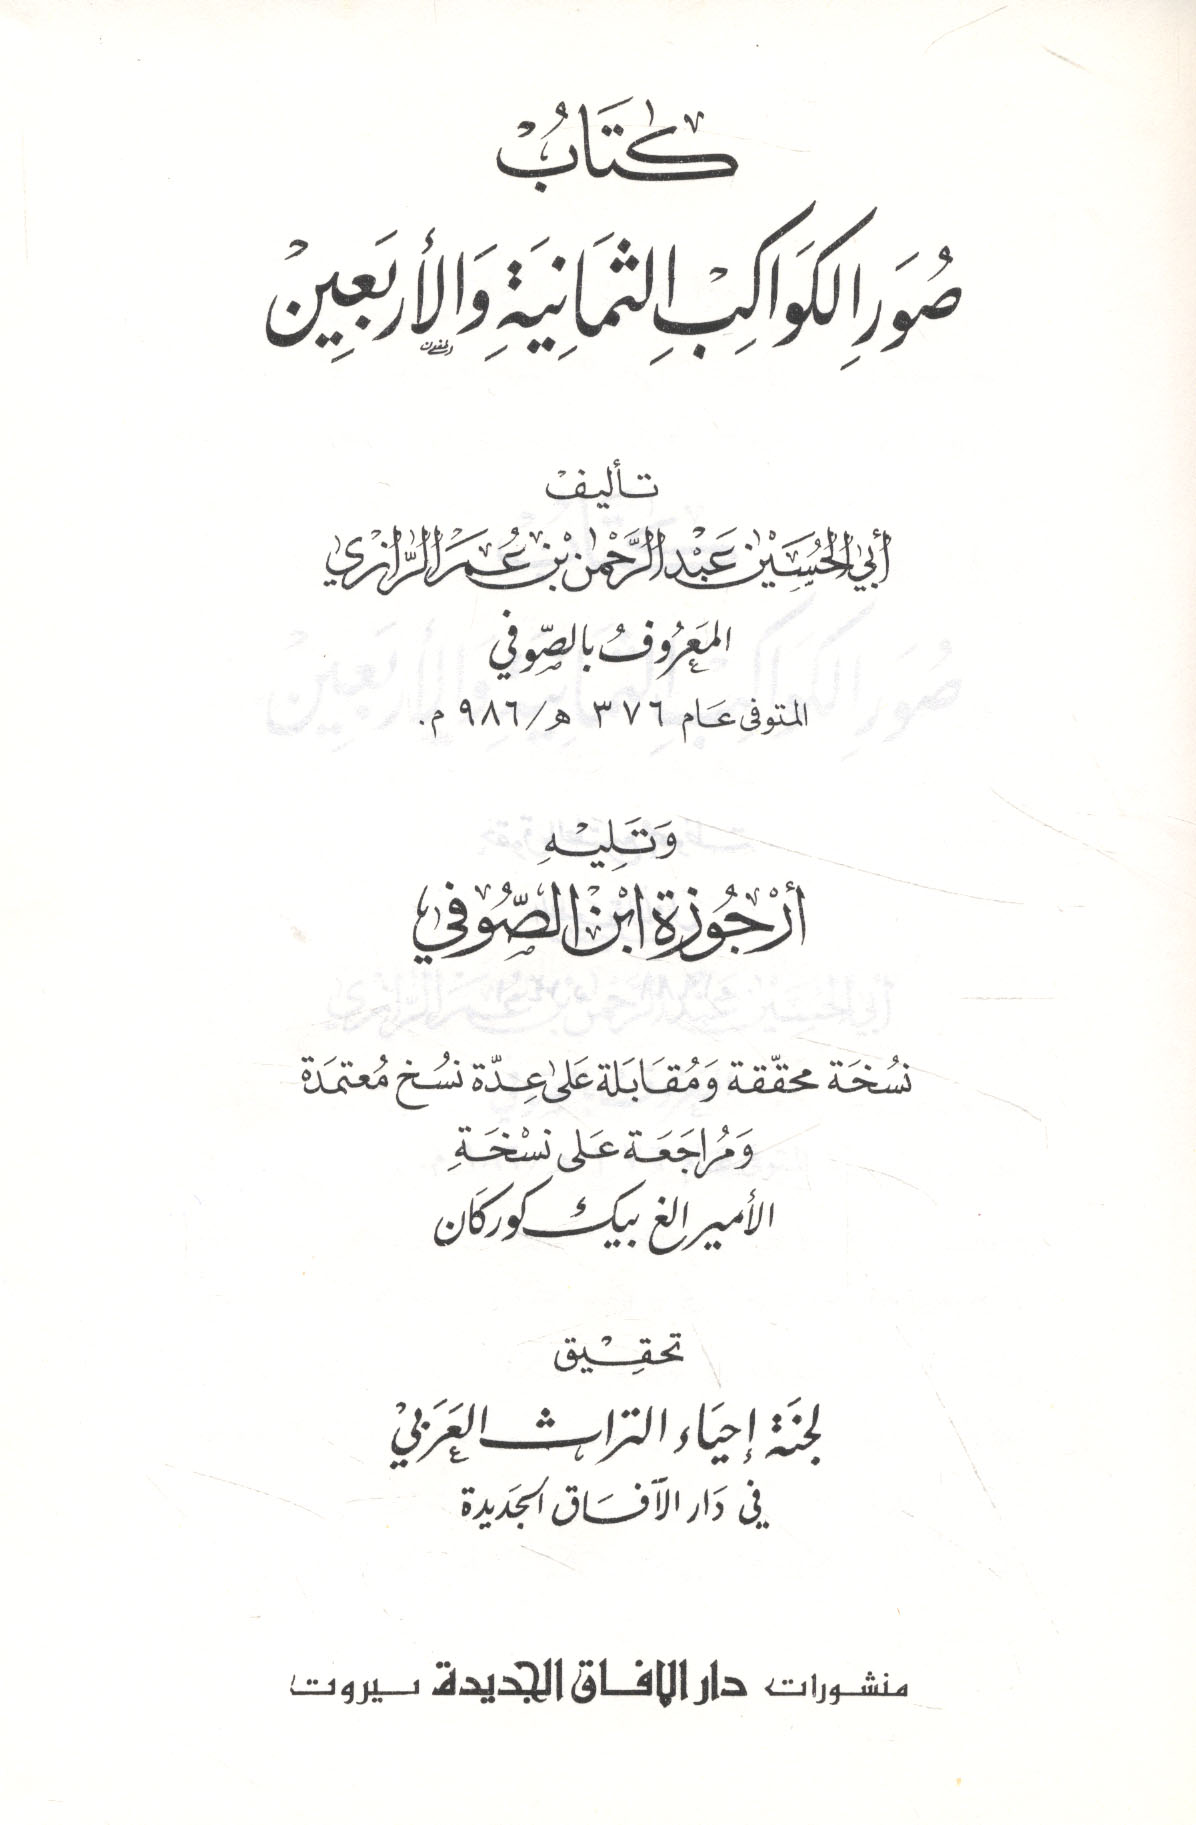 كتَابُ
صُوَرِ الكَوَاكِبِ الثمَانِيَةِ وَالأربَعِين
تأليف
أبي الحُسَيْن عَبْد الرَّحْمٰن بْن عُمَر الرَّازي
المَعرُوفُ بالصّوفي
المتوفى عَام ٣٧٦ هـ/٩٨٦ م.
وَتَلِيْهِ
أرْجُوزة ابْن الصُّوفي
نسُخَة محقّقة وَمُقَابَلة عَلى عِدّة نسُخ مُعتمَدَة
وَمُراجَعَة عَلى نسْخَةِ
الأمير الغ بيك كوركان
تحقِيق
لجنَة إحيَاء التراث العَرَبي
في دَار الآفَاق الجَديدة
منشورات دار الافاق الجديدة بيروت